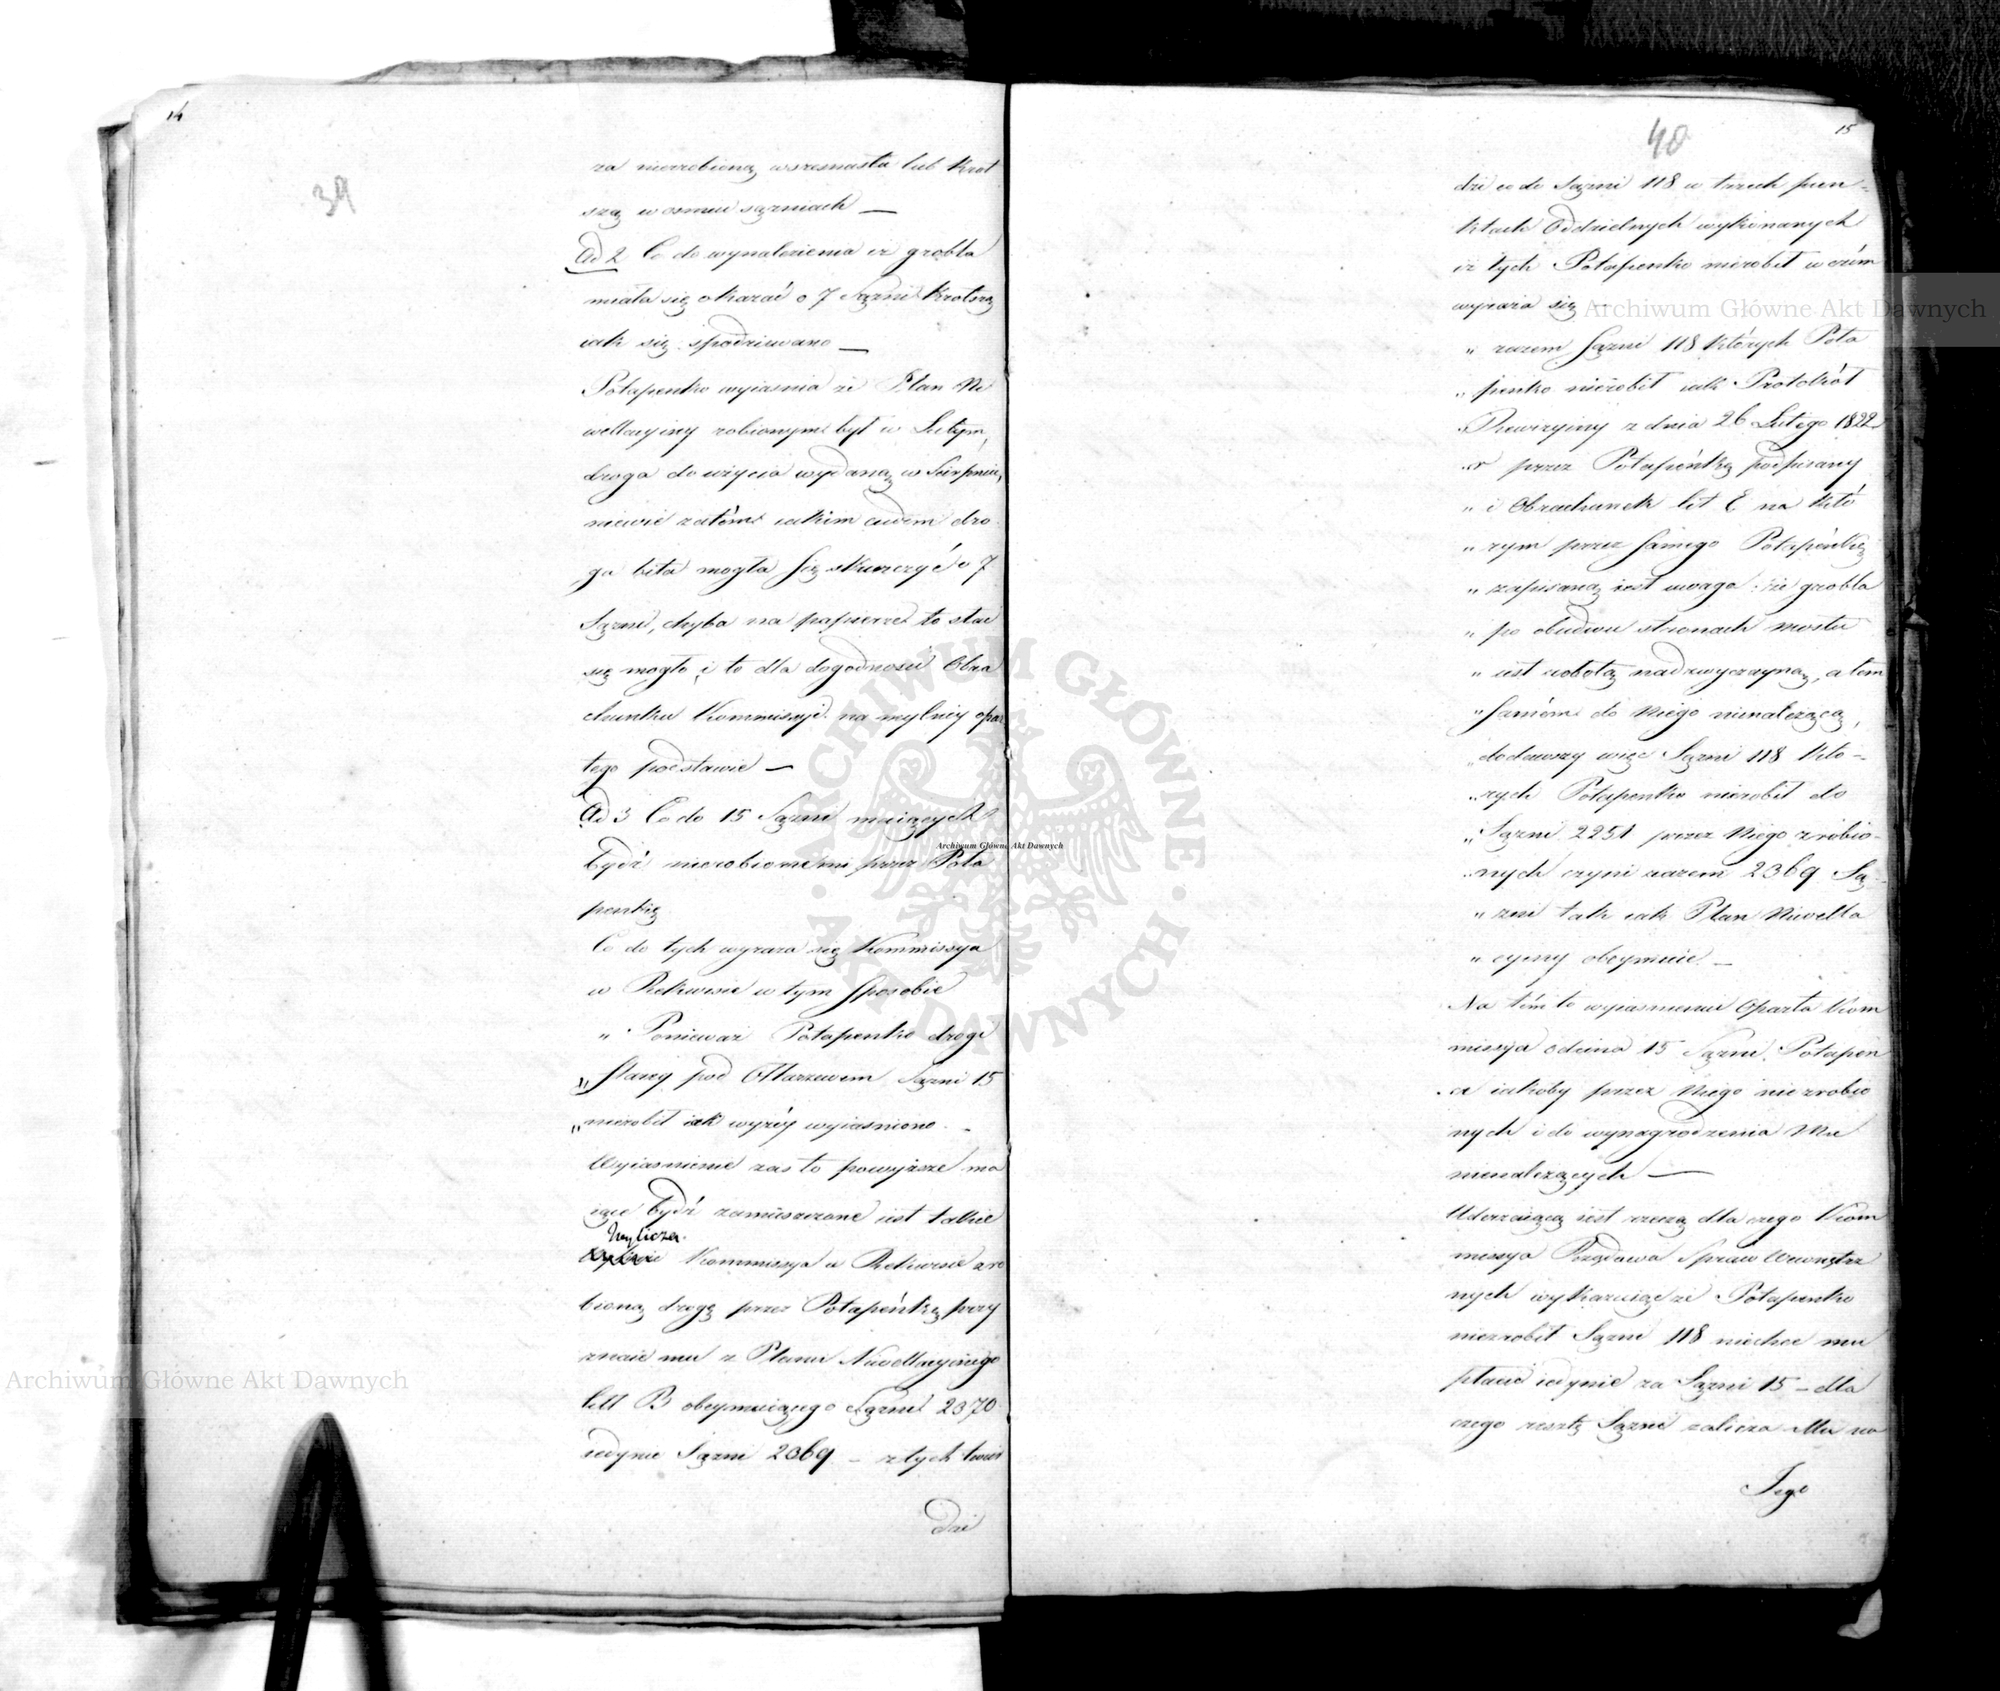 14
39
za nierobioną wszesnasta lub krot
szą w osmiu sążniach —
Ad 2 Co do wynalezienia iż grobla
miała się okazać o 7 Sążni krotszą
iak się spodziewano —
Potapenko wyiasnia że Plan Ni
wellacyiny robionym był w Lutym,
droga do użycia wydaną w Sierpniu,
niewie zatém iakim cudem dro
ga bita mogła się skurczyć o 7
Sążni, chyba na papierze to stać
się mogło i to dla dogodnosci Obra
chunku Kommissyi na mylney opar
tego podstawie —
Ad 3 Co do 15 Sążni maiących
bydź nierobionemi przez Pota
penkę
Co do tych wyraża się Kommissya
w Rekwisie w tym sposobie
" Ponieważ Potapenko drogi
" starey pod Ołtarzewem Sążni 15
" nierobił iak wyżéy wyiasniono. -
Wyiasnienie zas to powyższe ma
iące bydź zamieszczone iest takie
Wylicza.
Kommissya w Rekwisie zro
bioną drogę przez Potapenkę przy
znaie mu z Planu Niwellacyinego
litt B obeymuiącego Sążni 2370
iedynie Sążni 2369 – z tych twier
dzi
40
15
dzi co do Sążni 118 w trzech pun-
ktach Oddzielnych wykonanych
iż tych Potapenko nierobił w czém
wyraża się
" razem Sążni 118 których Pota
" penko nierobił iak Protokół
Rewizyiny z dnia 26 Lutego 1822
r przez Potapénkę podpisany
" i Obrachunek lit E na któ
" rym przez samego Potapénkę
" zapisaną iest uwaga: że grobla
" po obudwu stronach mostu
" iest robotą nadzwyczayną, a tem
" samém do Niego nienależącą,
" dodawszy więc Sążni 118 któ-
" rych Potapenko nierobił do
" Sążni 2251 przez Niego zrobio-
" nych czyni razem 2369 Są-
" żni tak iak Plan Niwella
" cyiny obeymuie. —
Na tém to wyiasnieniu Oparta Kom
missya odcina 15 Sążni Potapen
ce iakoby przez Niego niezrobio
nych i do wynagrodzenia Mu
nienależących —
Uderzaiącą iest rzeczą dla czego Kom
missya Rządowa Spraw Wewnętrz
nych wykazuiąc że Potapenko
niezrobił Sążni 118 niechce mu
płacić iedynie za Sążni 15 – dla
czego resztę Sążni zalicza Mu na
Jego
Archiwum Główne Akt Dawnych
Archiwum Główne Akt Dawnych
Archiwum Główne Akt Dawnych
ARCHIWUM GŁÓWNE · AKT DAWNYCH ·